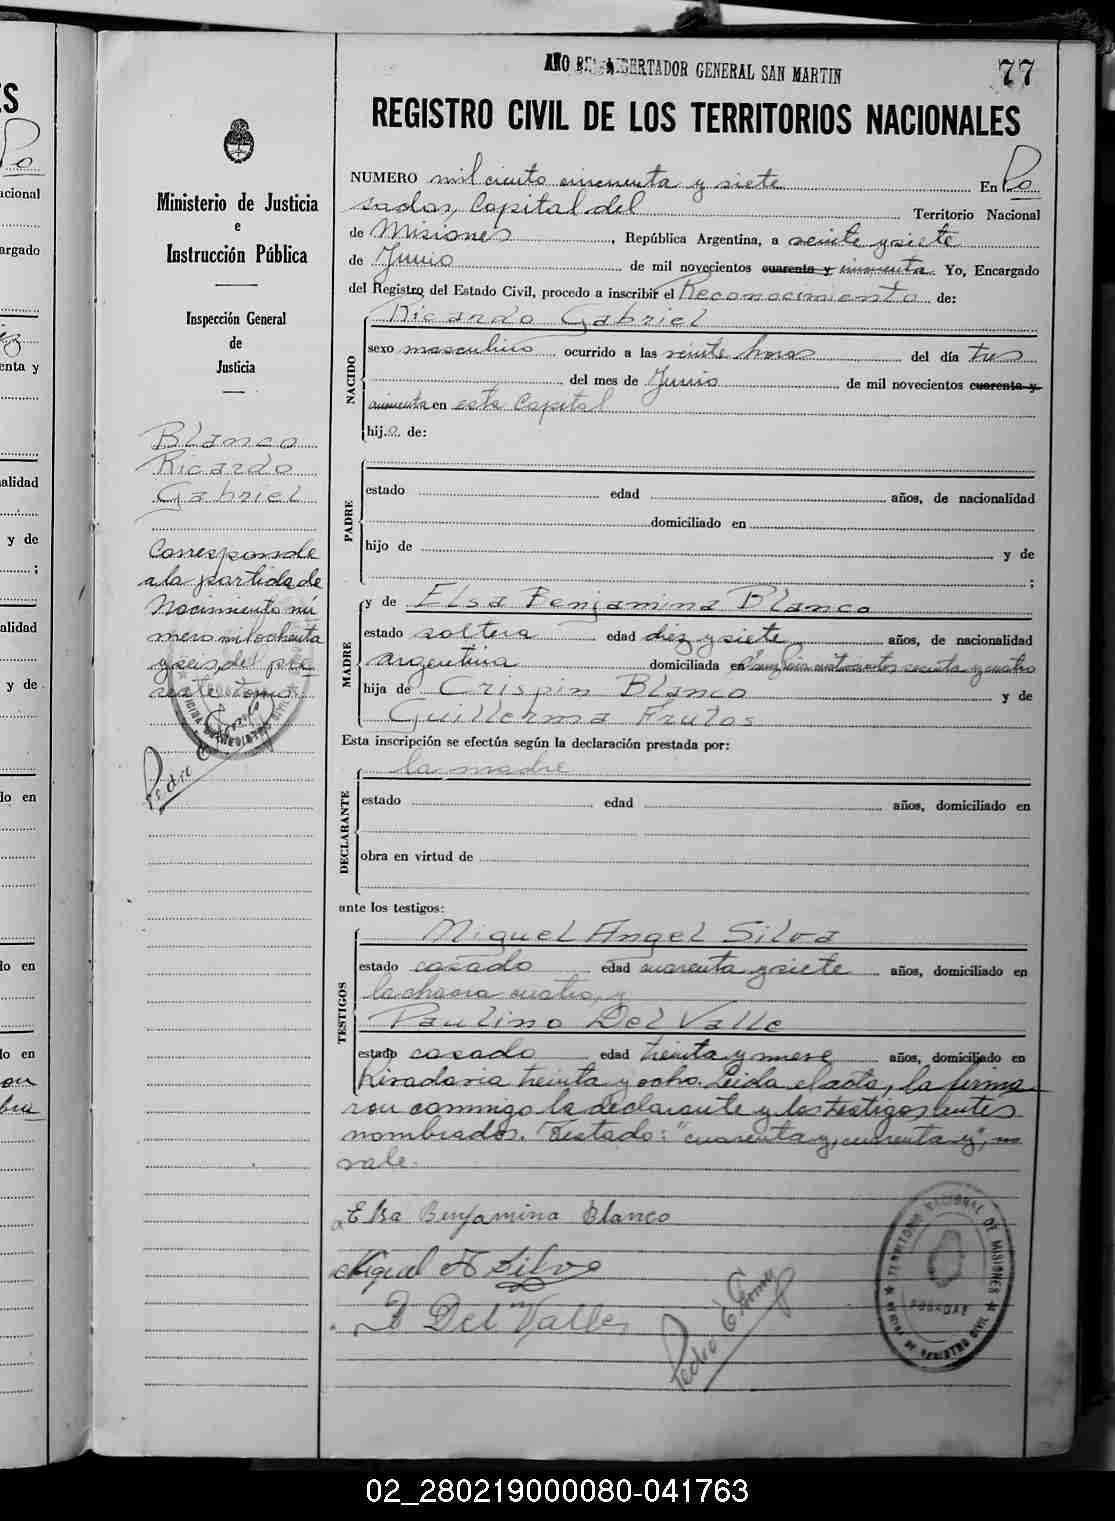 AÑO DEL LIBERTADOR GENERAL SAN MARTIN
77
REGISTRO CIVIL DE LOS TERRITORIOS NACIONALES
NUMERO mil ciento cincuenta y siete En Po
sadas, Capital del Territorio Nacional
de Misiones, República Argentina, a veinte y siete
de Junio de mil novecientos cuarenta y cincuenta. Yo, Encargado
del Registro del Estado Civil, procedo a inscribir el Reconocimiento de:
Ricardo Gabriel
NACIDO
sexo masculino ocurrido a las veinte horas del día tres
del mes de Junio de mil novecientos cuarenta y
cincuenta en esta Capital
hijo de:
PADRE
estado edad años, de nacionalidad
domiciliado en
hijo de y de
;
MADRE
y de Elsa Benjamina Blanco
estado soltera edad diez y siete años, de nacionalidad
argentina domiciliada en cuatrocientos sesenta y cuatro
hija de Crispin Blanco y de
Guillerma Frutos
Esta inscripción se efectúa según la declaración prestada por:
la madre
DECLARANTE
estado edad años, domiciliado en
obra en virtud de
ante los testigos:
TESTIGOS
Miguel Angel Silva
estado casado edad cuarenta y siete años, domiciliado en
la chacra cuatro, y
Paulino Del Valle
estado casado edad treinta y nueve años, domiciliado en
Rivadavia treinta y ocho. Leida el acta, la firma
ron conmigo la declarante y los testigos antes
nombrados. Testado: "cuarenta y, cuarenta y", no
vale.
Elsa Benjamina Blanco
Miguel A Silva
P Del Valle
Pedro E. Gomez
TERRITORIO NACIONAL DE MISIONES
POSADAS
OFICINA DE REGISTRO CIVIL
Ministerio de Justicia
e
Instrucción Pública
Inspección General
de
Justicia
Blanco
Ricardo
Gabriel
Corresponde
a la partida de
Nacimiento nú
mero mil ochenta
y seis, del pre
sente tomo
Pedro E. Gomez
02_280219000080-041763